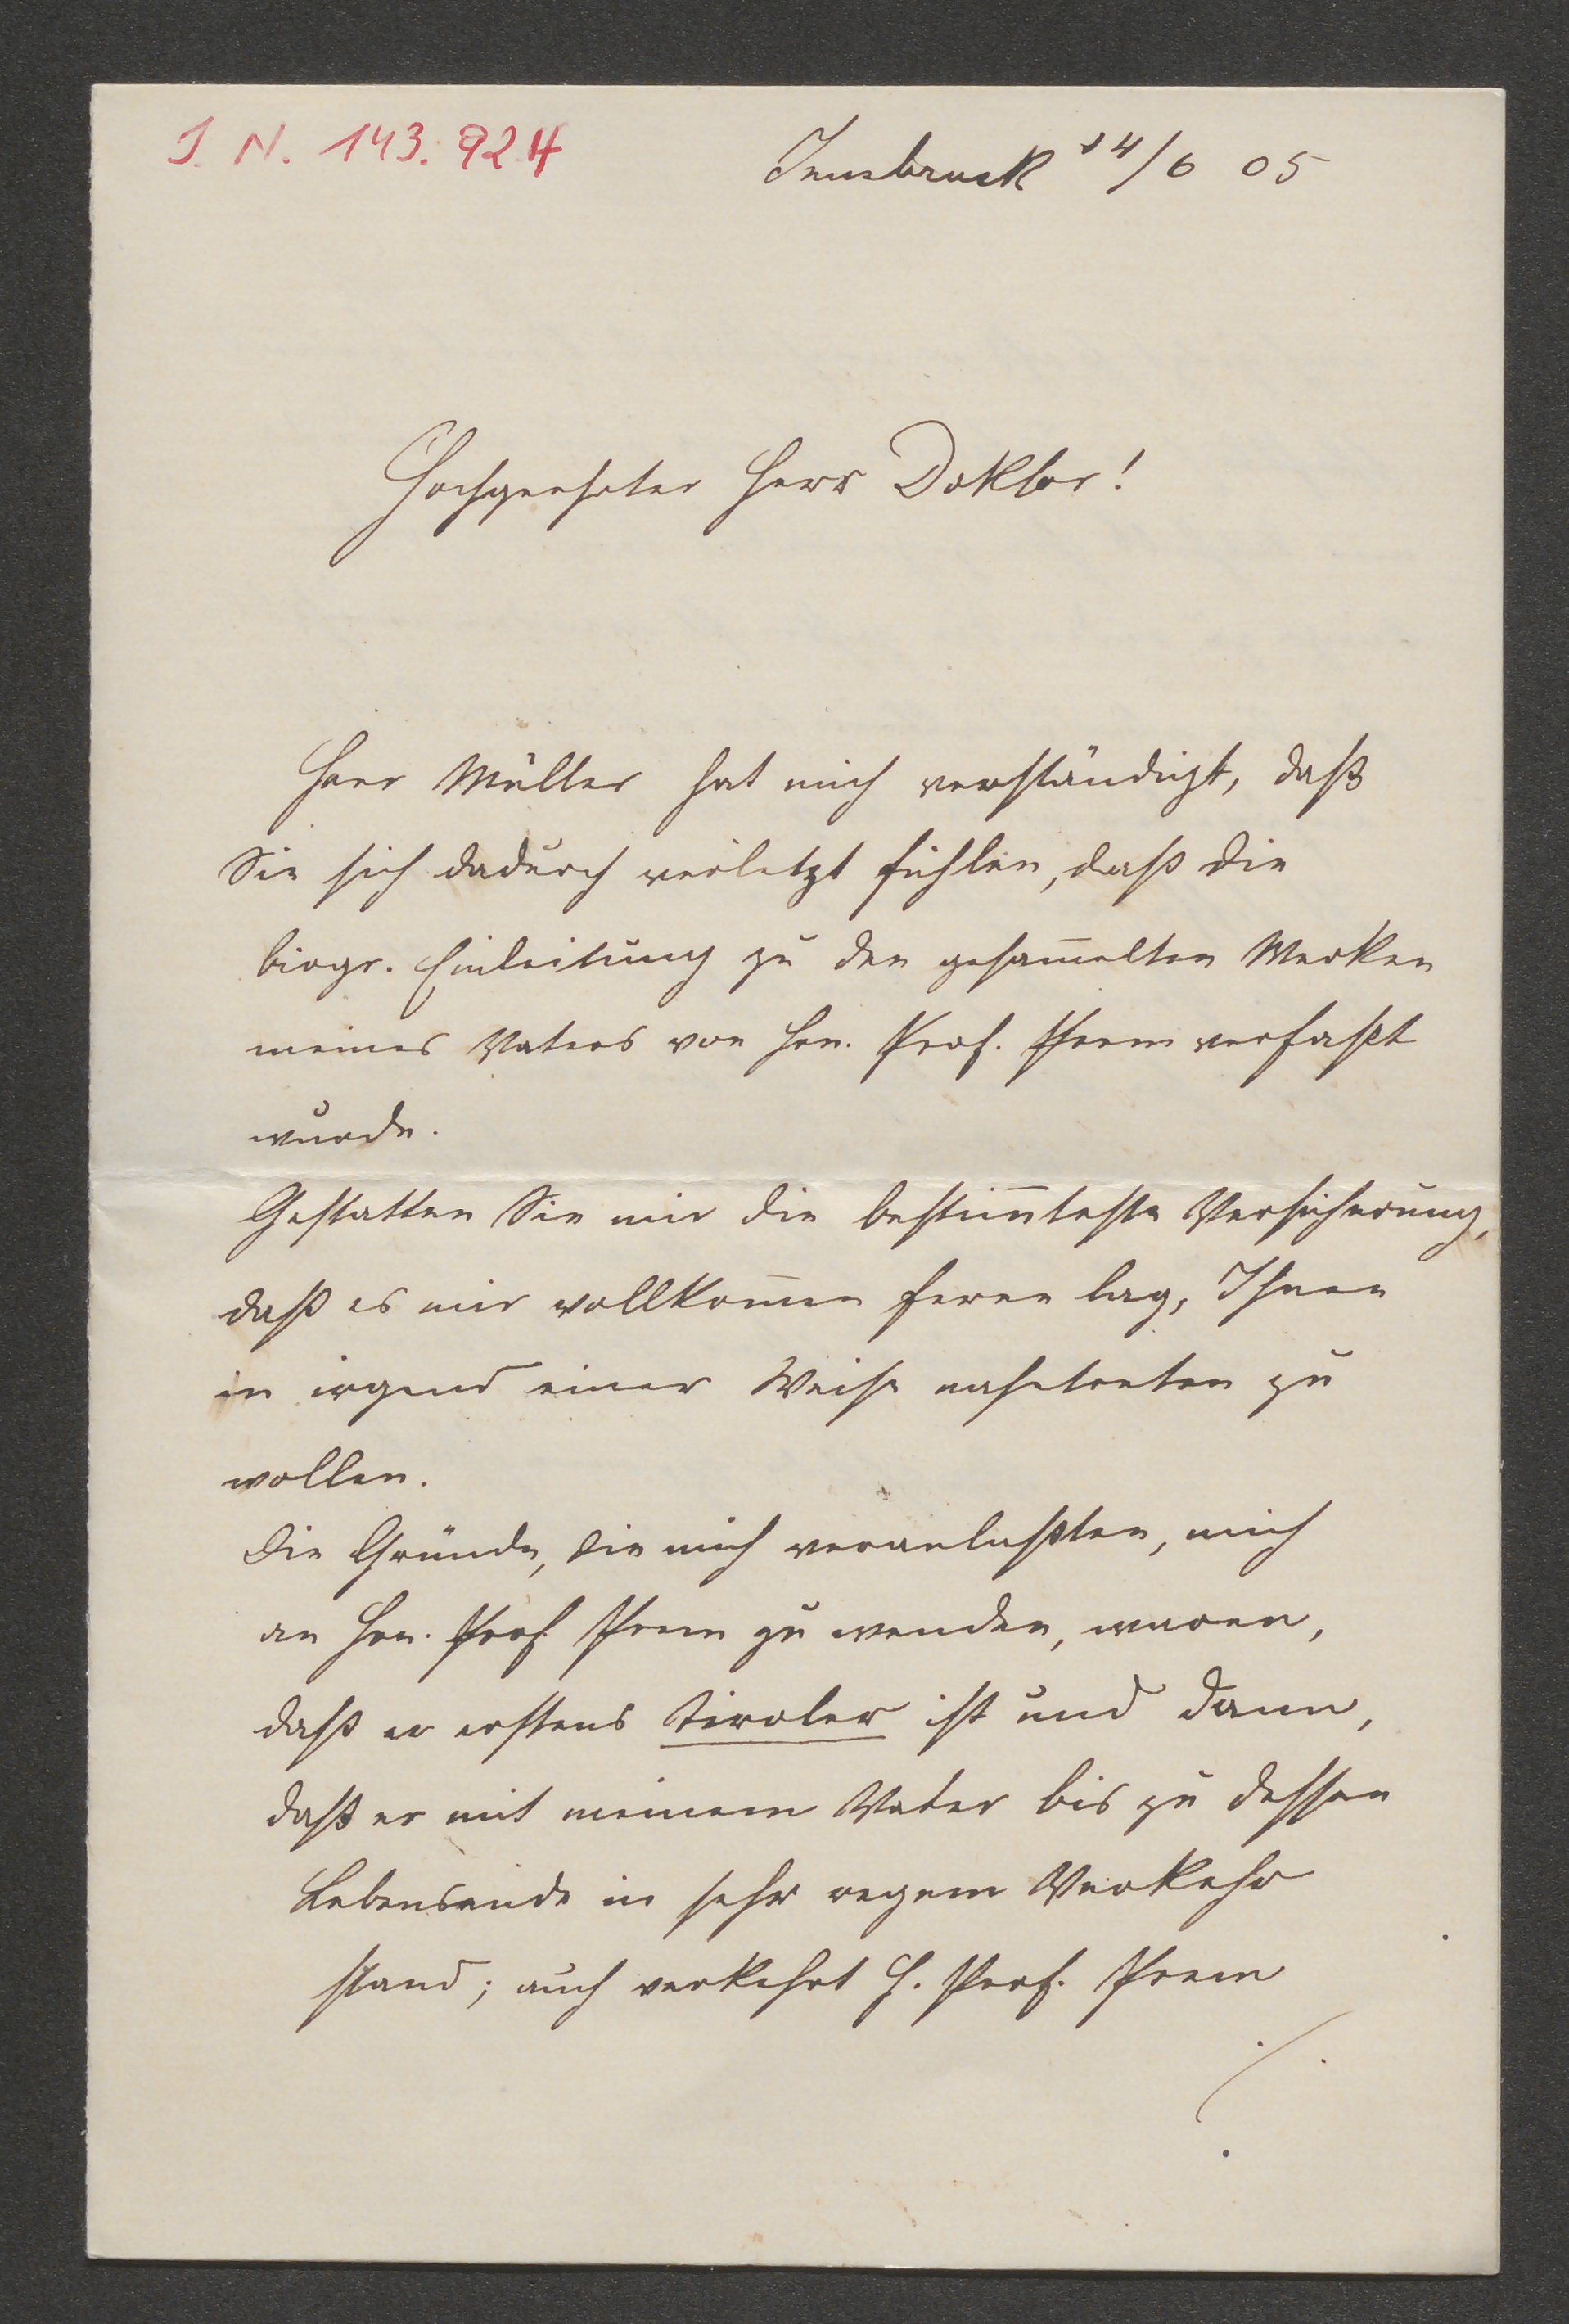 I. N. 143.924
Innsbruck 14/6 05
Hochgeehrter Herr Doktor!
Herr Müller hat mich verständigt, daß
Sie sich dadurch verletzt fühlen, daß die
biogr. Einleitung zu den gesam̅elten Werken
meines Vaters von Hrn. Prof. Prem verfaßt
wurde.
Gestatten Sie mir die bestim̅teste Versicherung,
daß es mir vollkom̅en ferne lag, Ihnen
in irgend einer Weise nahetreten zu
wollen.
Die Gründe, die mich veranlaßten, mich
an Hrn. Prof. Prem zu wenden, waren,
daß er erstens Tiroler ist und dann,
daß er mit meinem Vater bis zu dessen
Lebensende in sehr regem Verkehr
stand; auch verkehrt H. Prof. Prem
./.